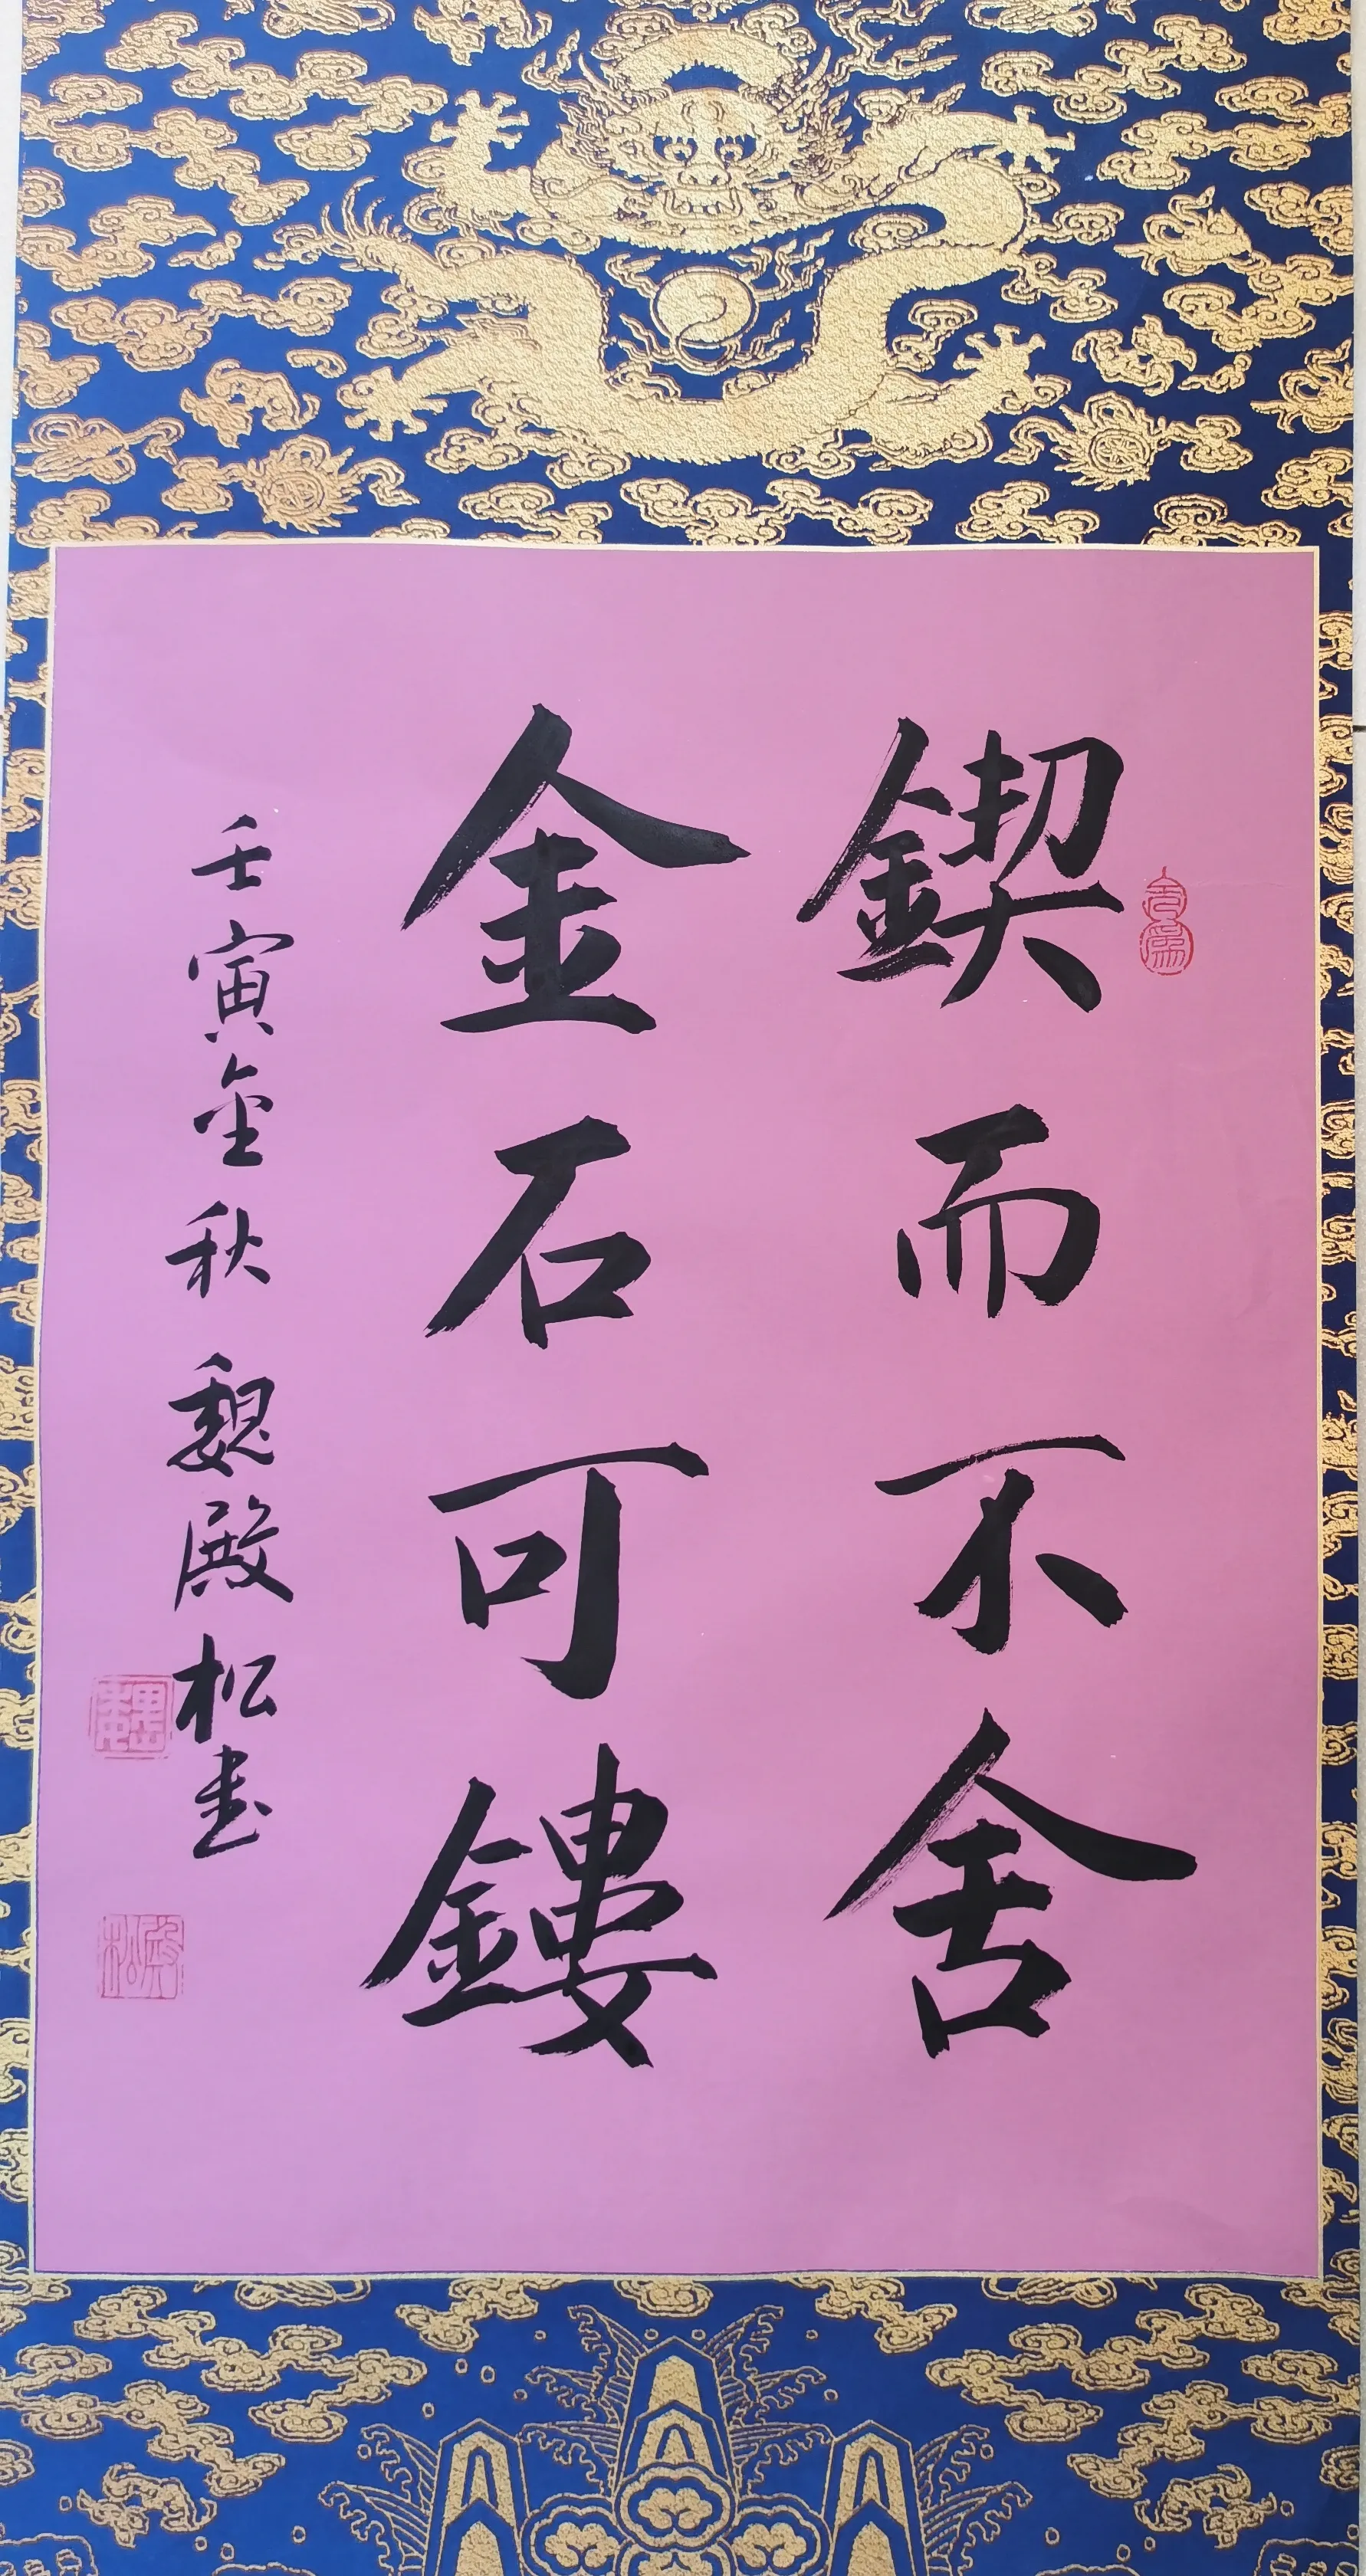 鍥而不舍
金石可鏤
壬寅金秋 魏殿松書
魏
殿松